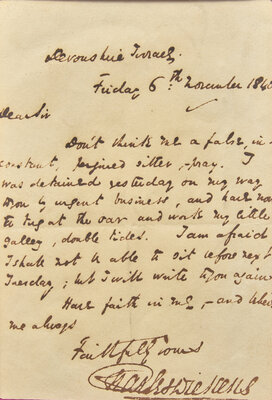 Devonshire Terrace
Friday 6th November 1840
Dear Sir
Don't think me a false, in-
constant, perjured sitter, pray. I
was detained yesterday on my way
to you by urgent business, and have now
to tug at the oar and work my little
galley, double tides. I am afraid
I shall not be able to sit before next
Tuesday; but I will write to you again.
Have faith in me, – and believe
me always
Faithfully Yours
Charles Dickens